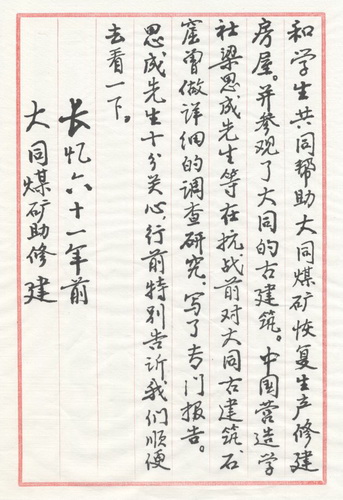 和学生共同帮助大同煤矿恢复生产修建
房屋。并参观了大同的古建筑。中国营造学
社梁思成先生等在抗战前对大同古建筑、石
窟曾做详细的调查研究、写了专门报告。
思成先生十分关心行前特别告诉我们顺便
去看一下。
长忆六十一年前
大同煤矿助修建